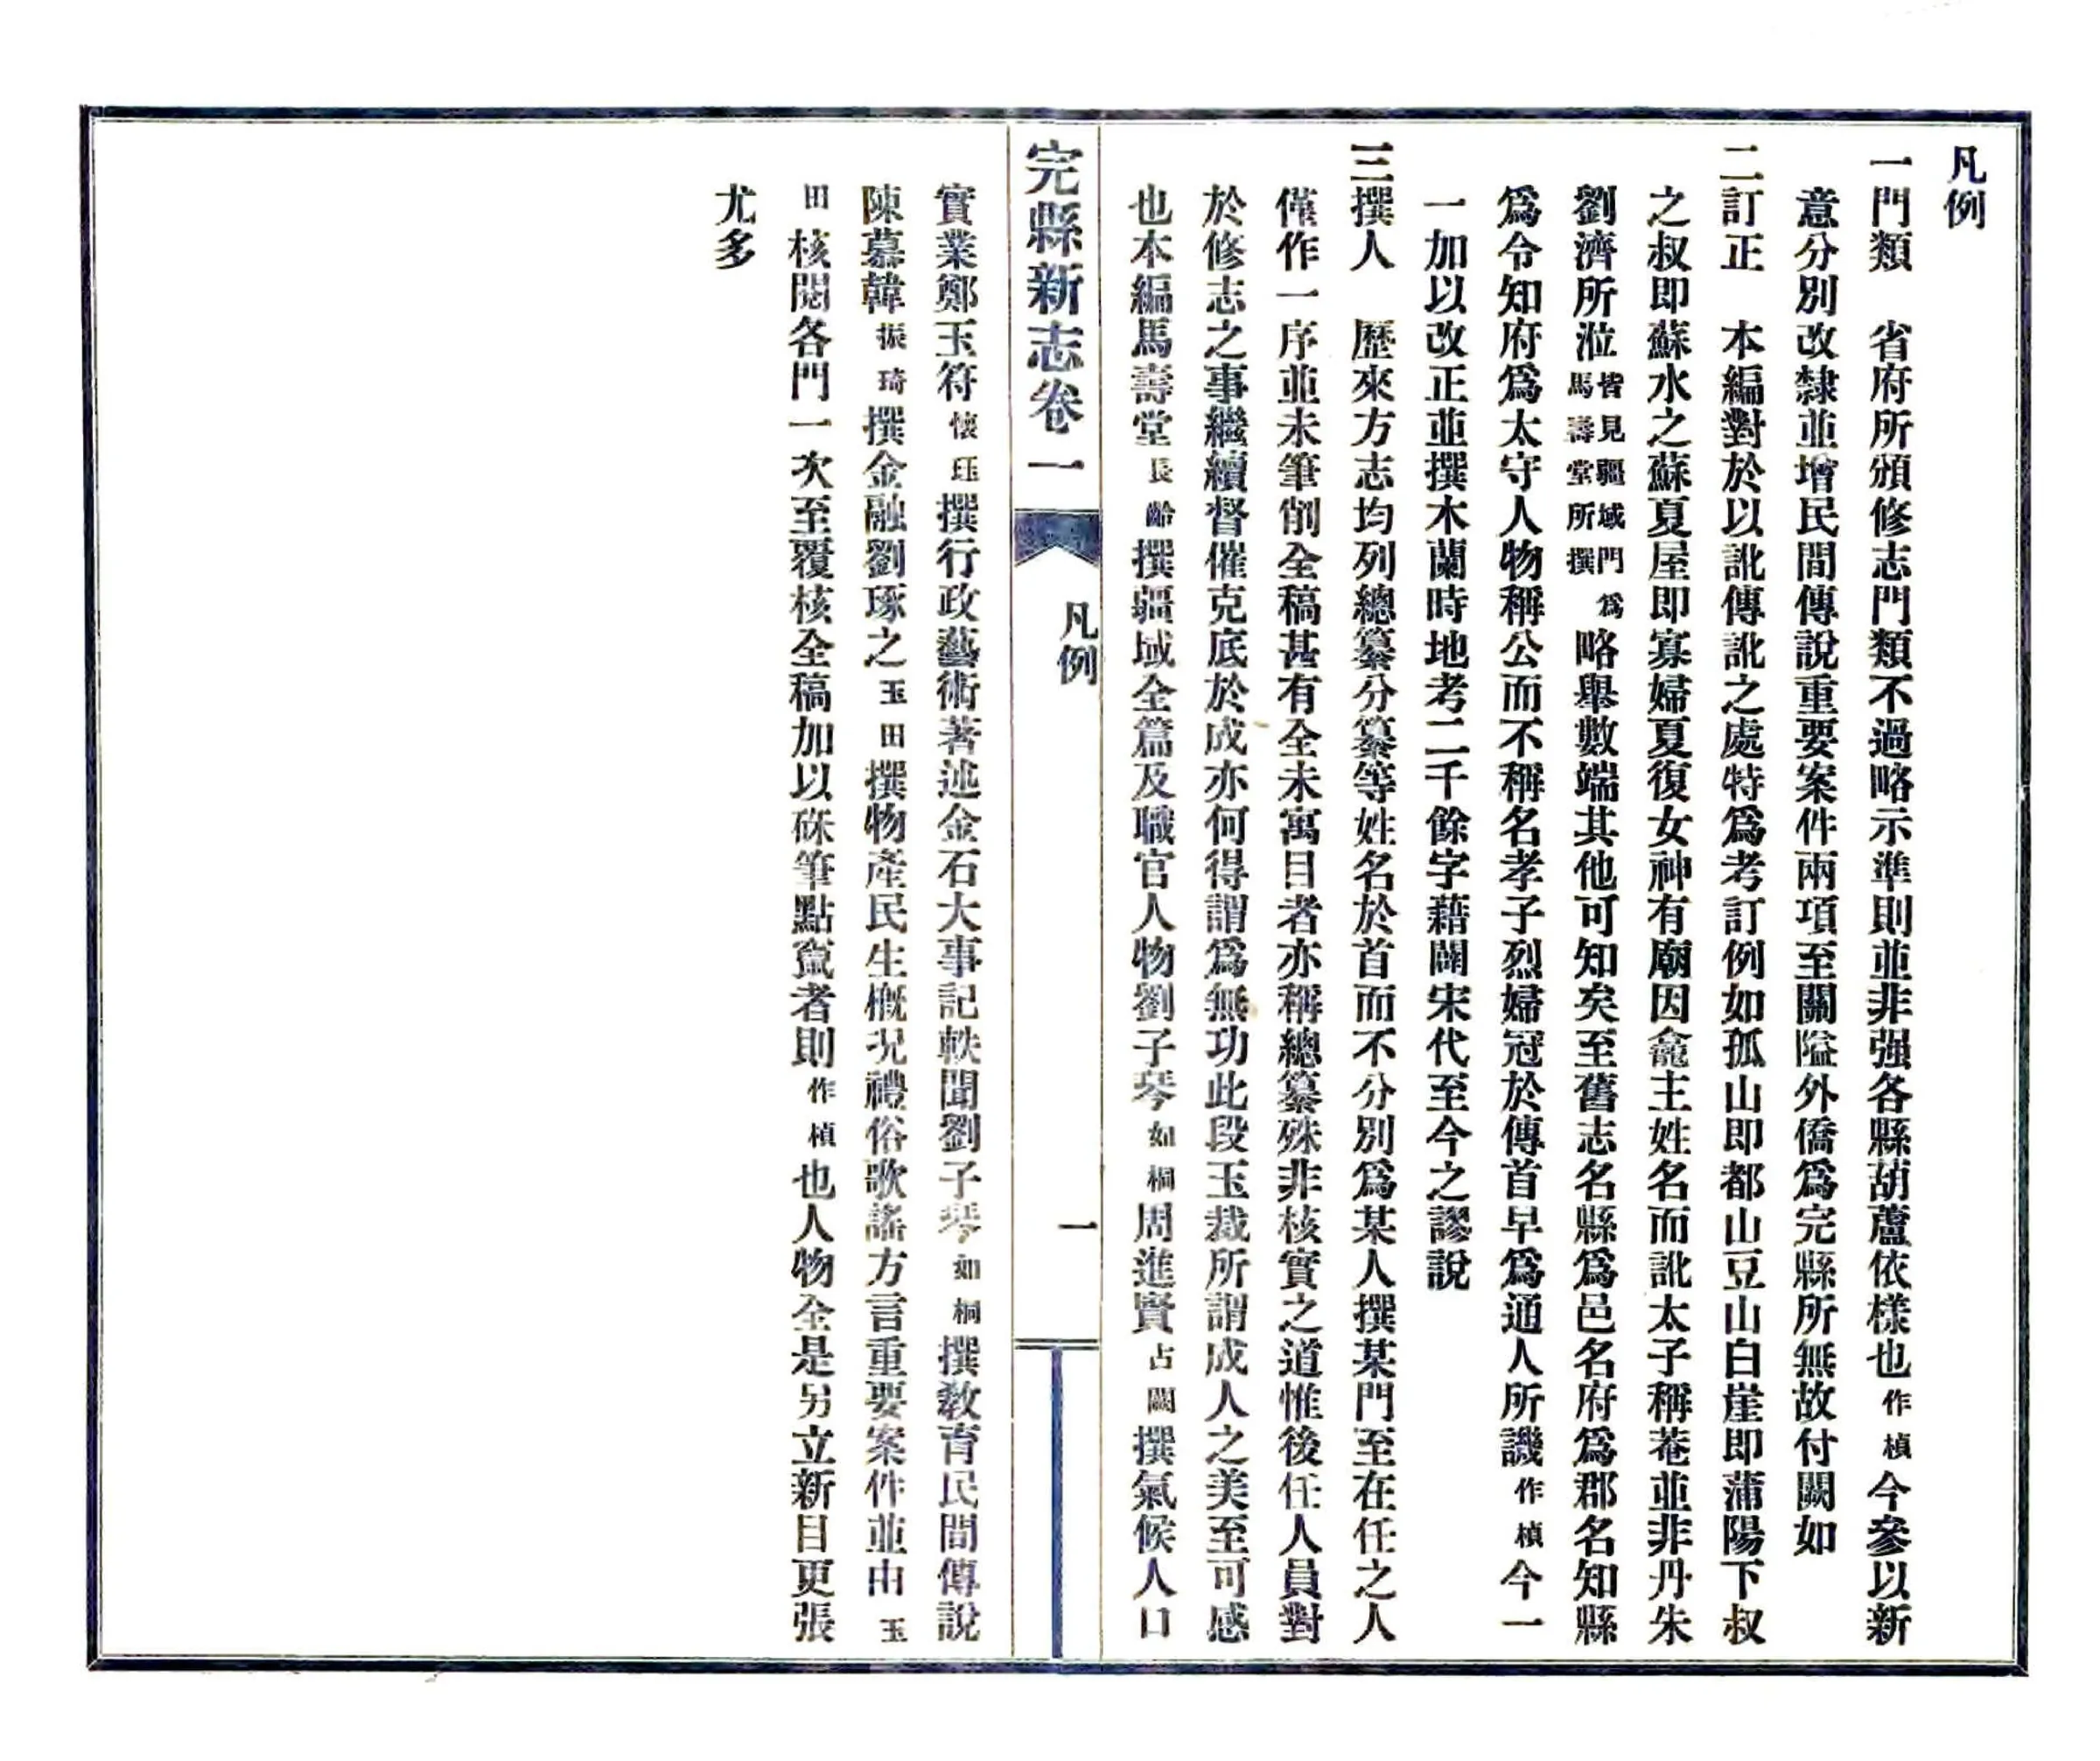 凡例
一門類　省府所頒修志門類不過略示準則並非强各縣葫蘆依樣也作楨今參以新
意分別改隸並增民間傳說重要案件兩項至關隘外僑爲完縣所無故付闕如
二訂正　本編對於以訛傳訛之處特爲考訂例如孤山即都山豆山白崖即蒲陽下叔
之叔即蘇水之蘇夏屋即寡婦夏復女神有廟因龕主姓名而訛太子稱菴並非丹朱
劉濟所涖皆見疆域門爲馬壽堂所撰略舉數端其他可知矣至舊志名縣爲邑名府爲郡名知縣
爲令知府爲太守人物稱公而不稱名孝子烈婦冠於傳首早爲通人所譏作楨今一
一加以改正並撰木蘭時地考二千餘字藉闢宋代至今之謬說
三撰人　歷來方志均列總纂分纂等姓名於首而不分別爲某人撰某門至在任之人
僅作一序並未筆削全稿甚有全未寓目者亦稱總纂殊非核實之道惟後任人員對
於修志之事繼續督催克底於成亦何得謂爲無功此段玉裁所謂成人之美至可感
也本編馬壽堂長齡撰疆域全篇及職官人物劉子琴如桐周進賢占闗撰氣候人口
完縣新志卷一
凡例
一
實業鄭玉符懷珏撰行政藝術著述金石大事記軼聞劉子琴如桐撰敎育民間傳說
陳慕韓振琦撰金融劉琢之玉田撰物產民生槪況禮俗歌謠方言重要案件並由玉
田核閱各門一次至覆核全稿加以硃筆點竄者則作楨也人物全是另立新目更張
尤多